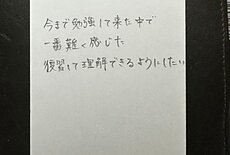 今まで勉強して来た中で
一番難く感じた
復習して理解できるようにしたい